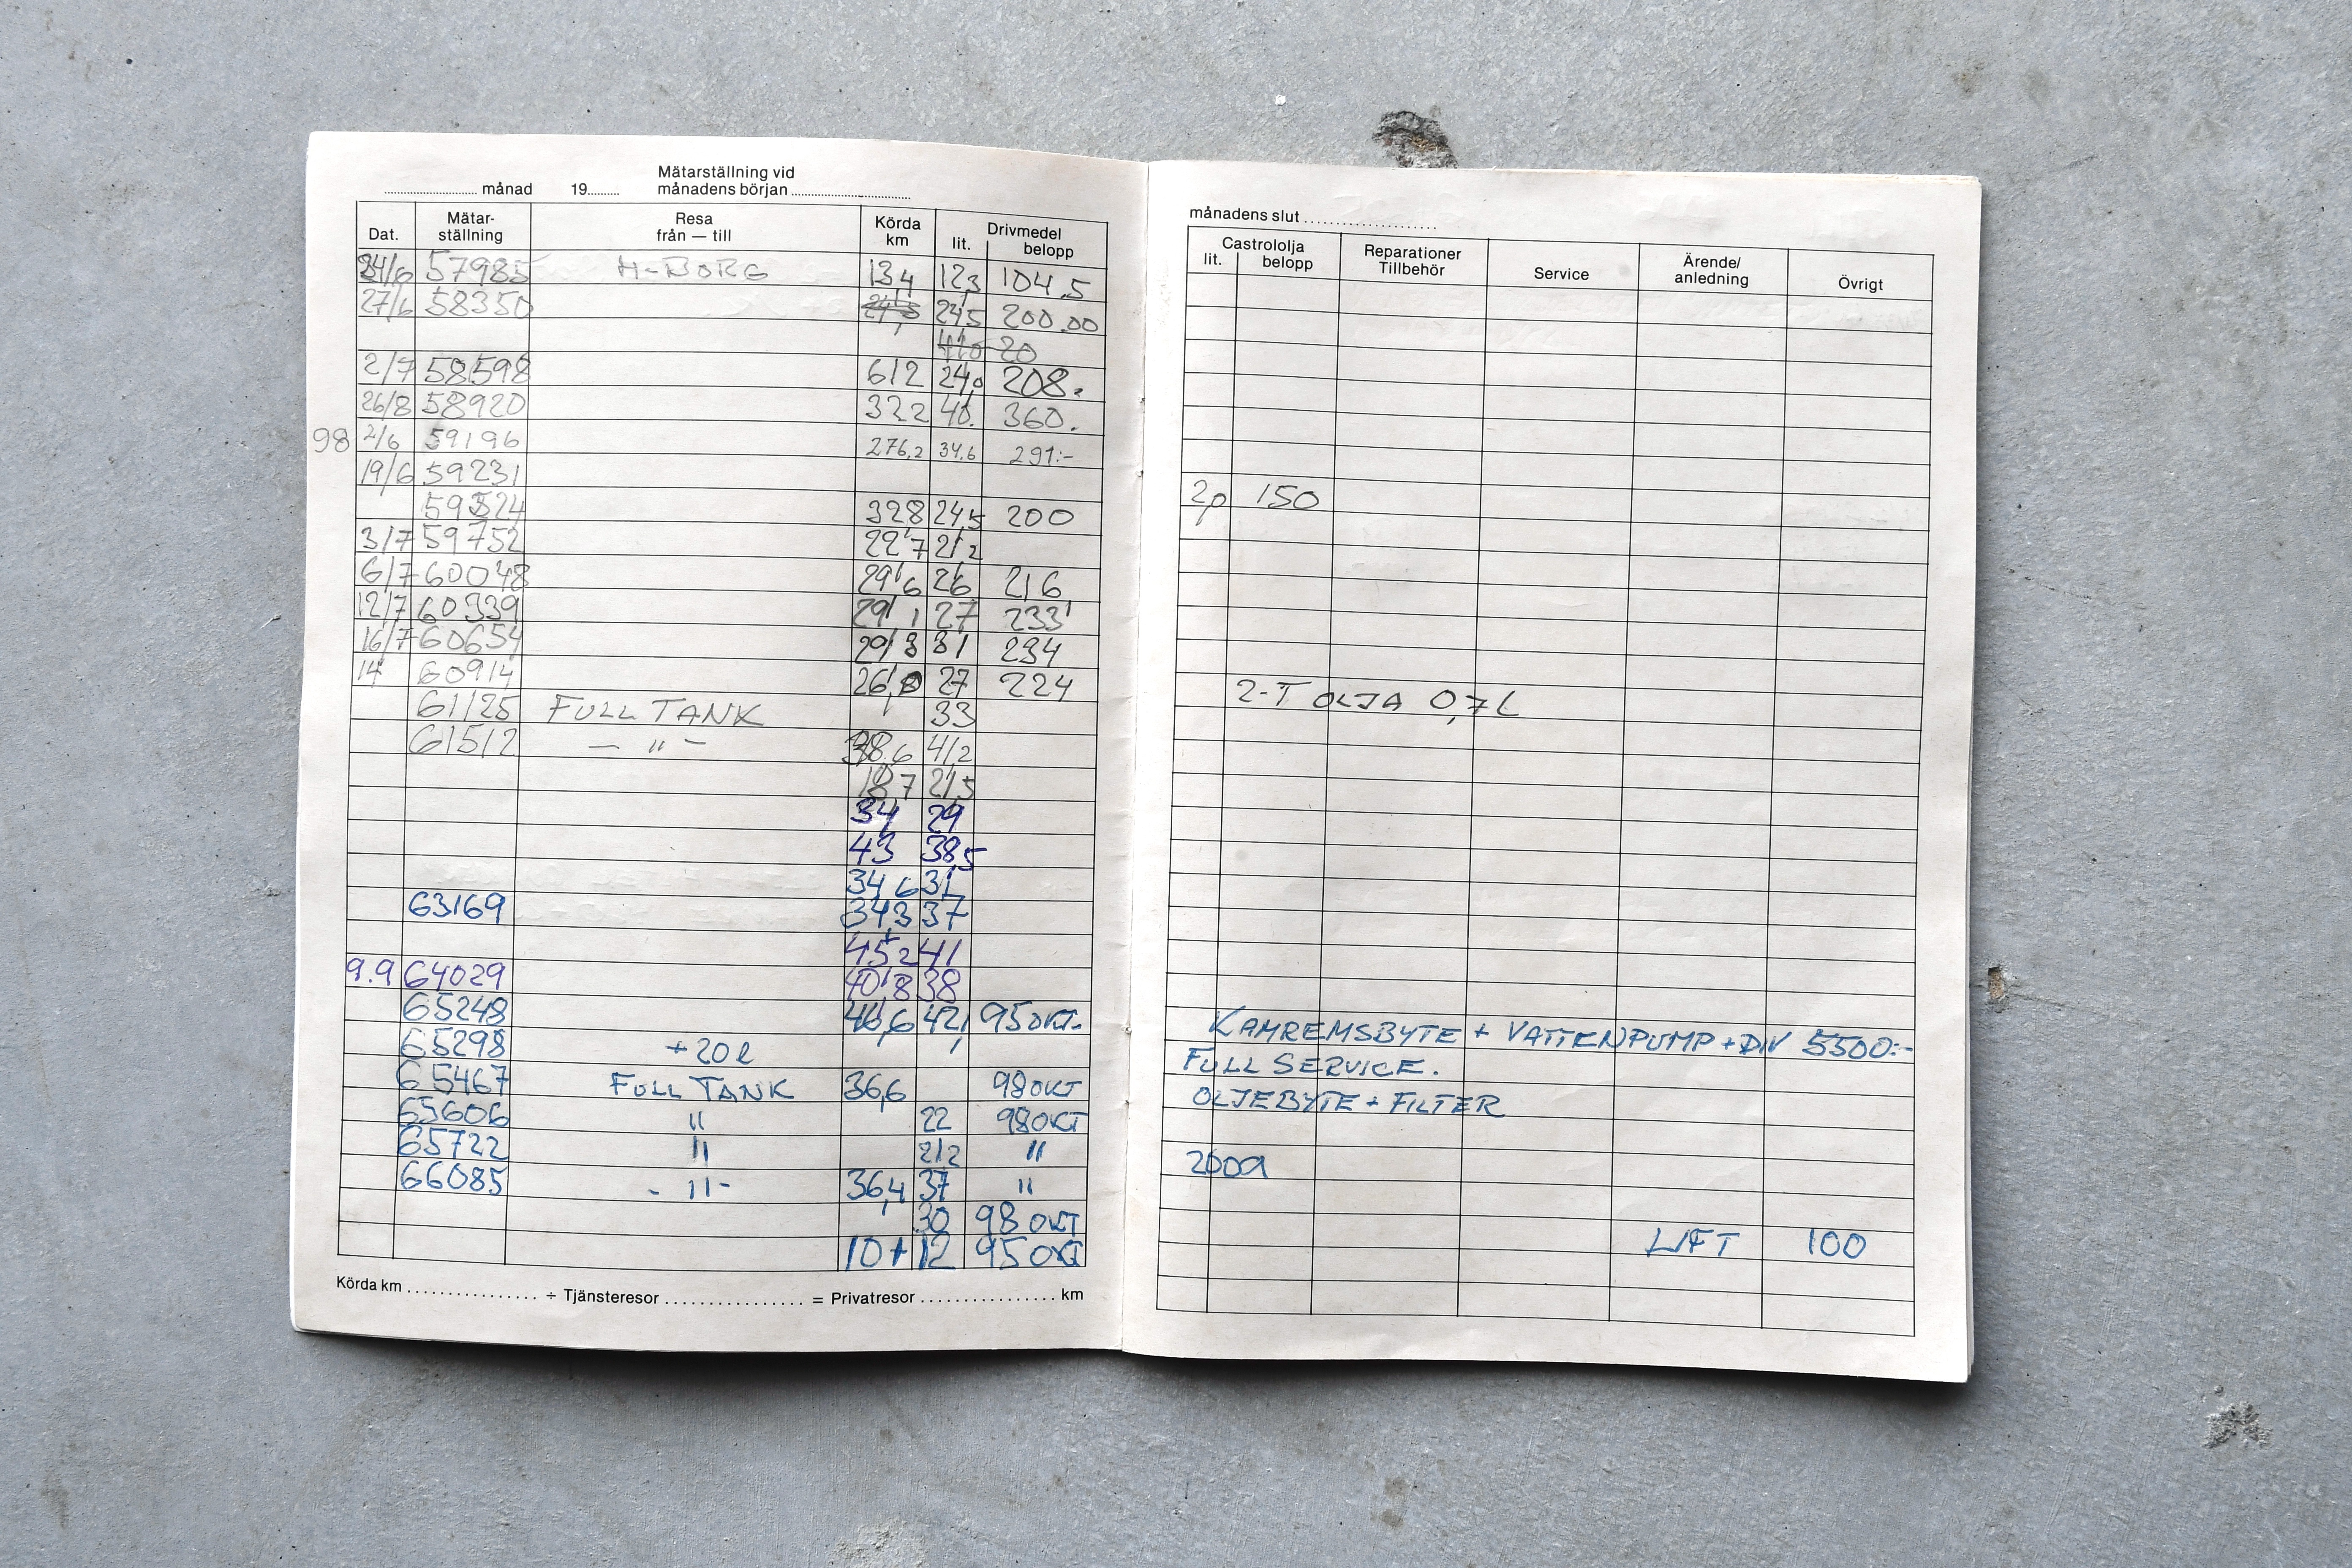 Mätarställning vid
månad 19 månadens början
Dat. Mätar- ställning Resa från — till Körda km Drivmedel lit. belopp
24/6 57985 H-BORG 134 12,3 104,5
27/6 58350 24,5 200.00
20
2/7 58598 612 24,0 208.
26/8 58920 322 40. 360.
98 2/6 59196 276,2 34,6 291:-
19/6 59231
59524 328 24,5 200
3/7 59752 22'7 21,2
6/7 60048 29'6 26 216
12/7 60339 29'1 27 233'
16/7 60654 29'3 31 234
14 60914 26,0 27 224
61125 FULL TANK 33
61512 — " — 38.6 41,2
18'7 21,5
34 29
43 38,5
34 6 31
63169 343 37
45'2 41
9.9 64029 40'8 38
65248 46,6 42, 95 OKT.
65298 +20l
65467 FULL TANK 36,6 98 OKT
65606 " 22 98 OKT
65722 " 21,2 "
66085 - " - 36,4 37 "
30 98 OKT
10 + 12 95 OKT
Körda km ÷ Tjänsteresor = Privatresor km
månadens slut
Castrololja lit. belopp Reparationer Tillbehör Service Ärende/ anledning Övrigt
2p 150
2-T OLJA 0,7 L
KAMREMSBYTE + VATTENPUMP + DIV 5500:-
FULL SERVICE.
OLJEBYTE + FILTER
2009
LIFT 100